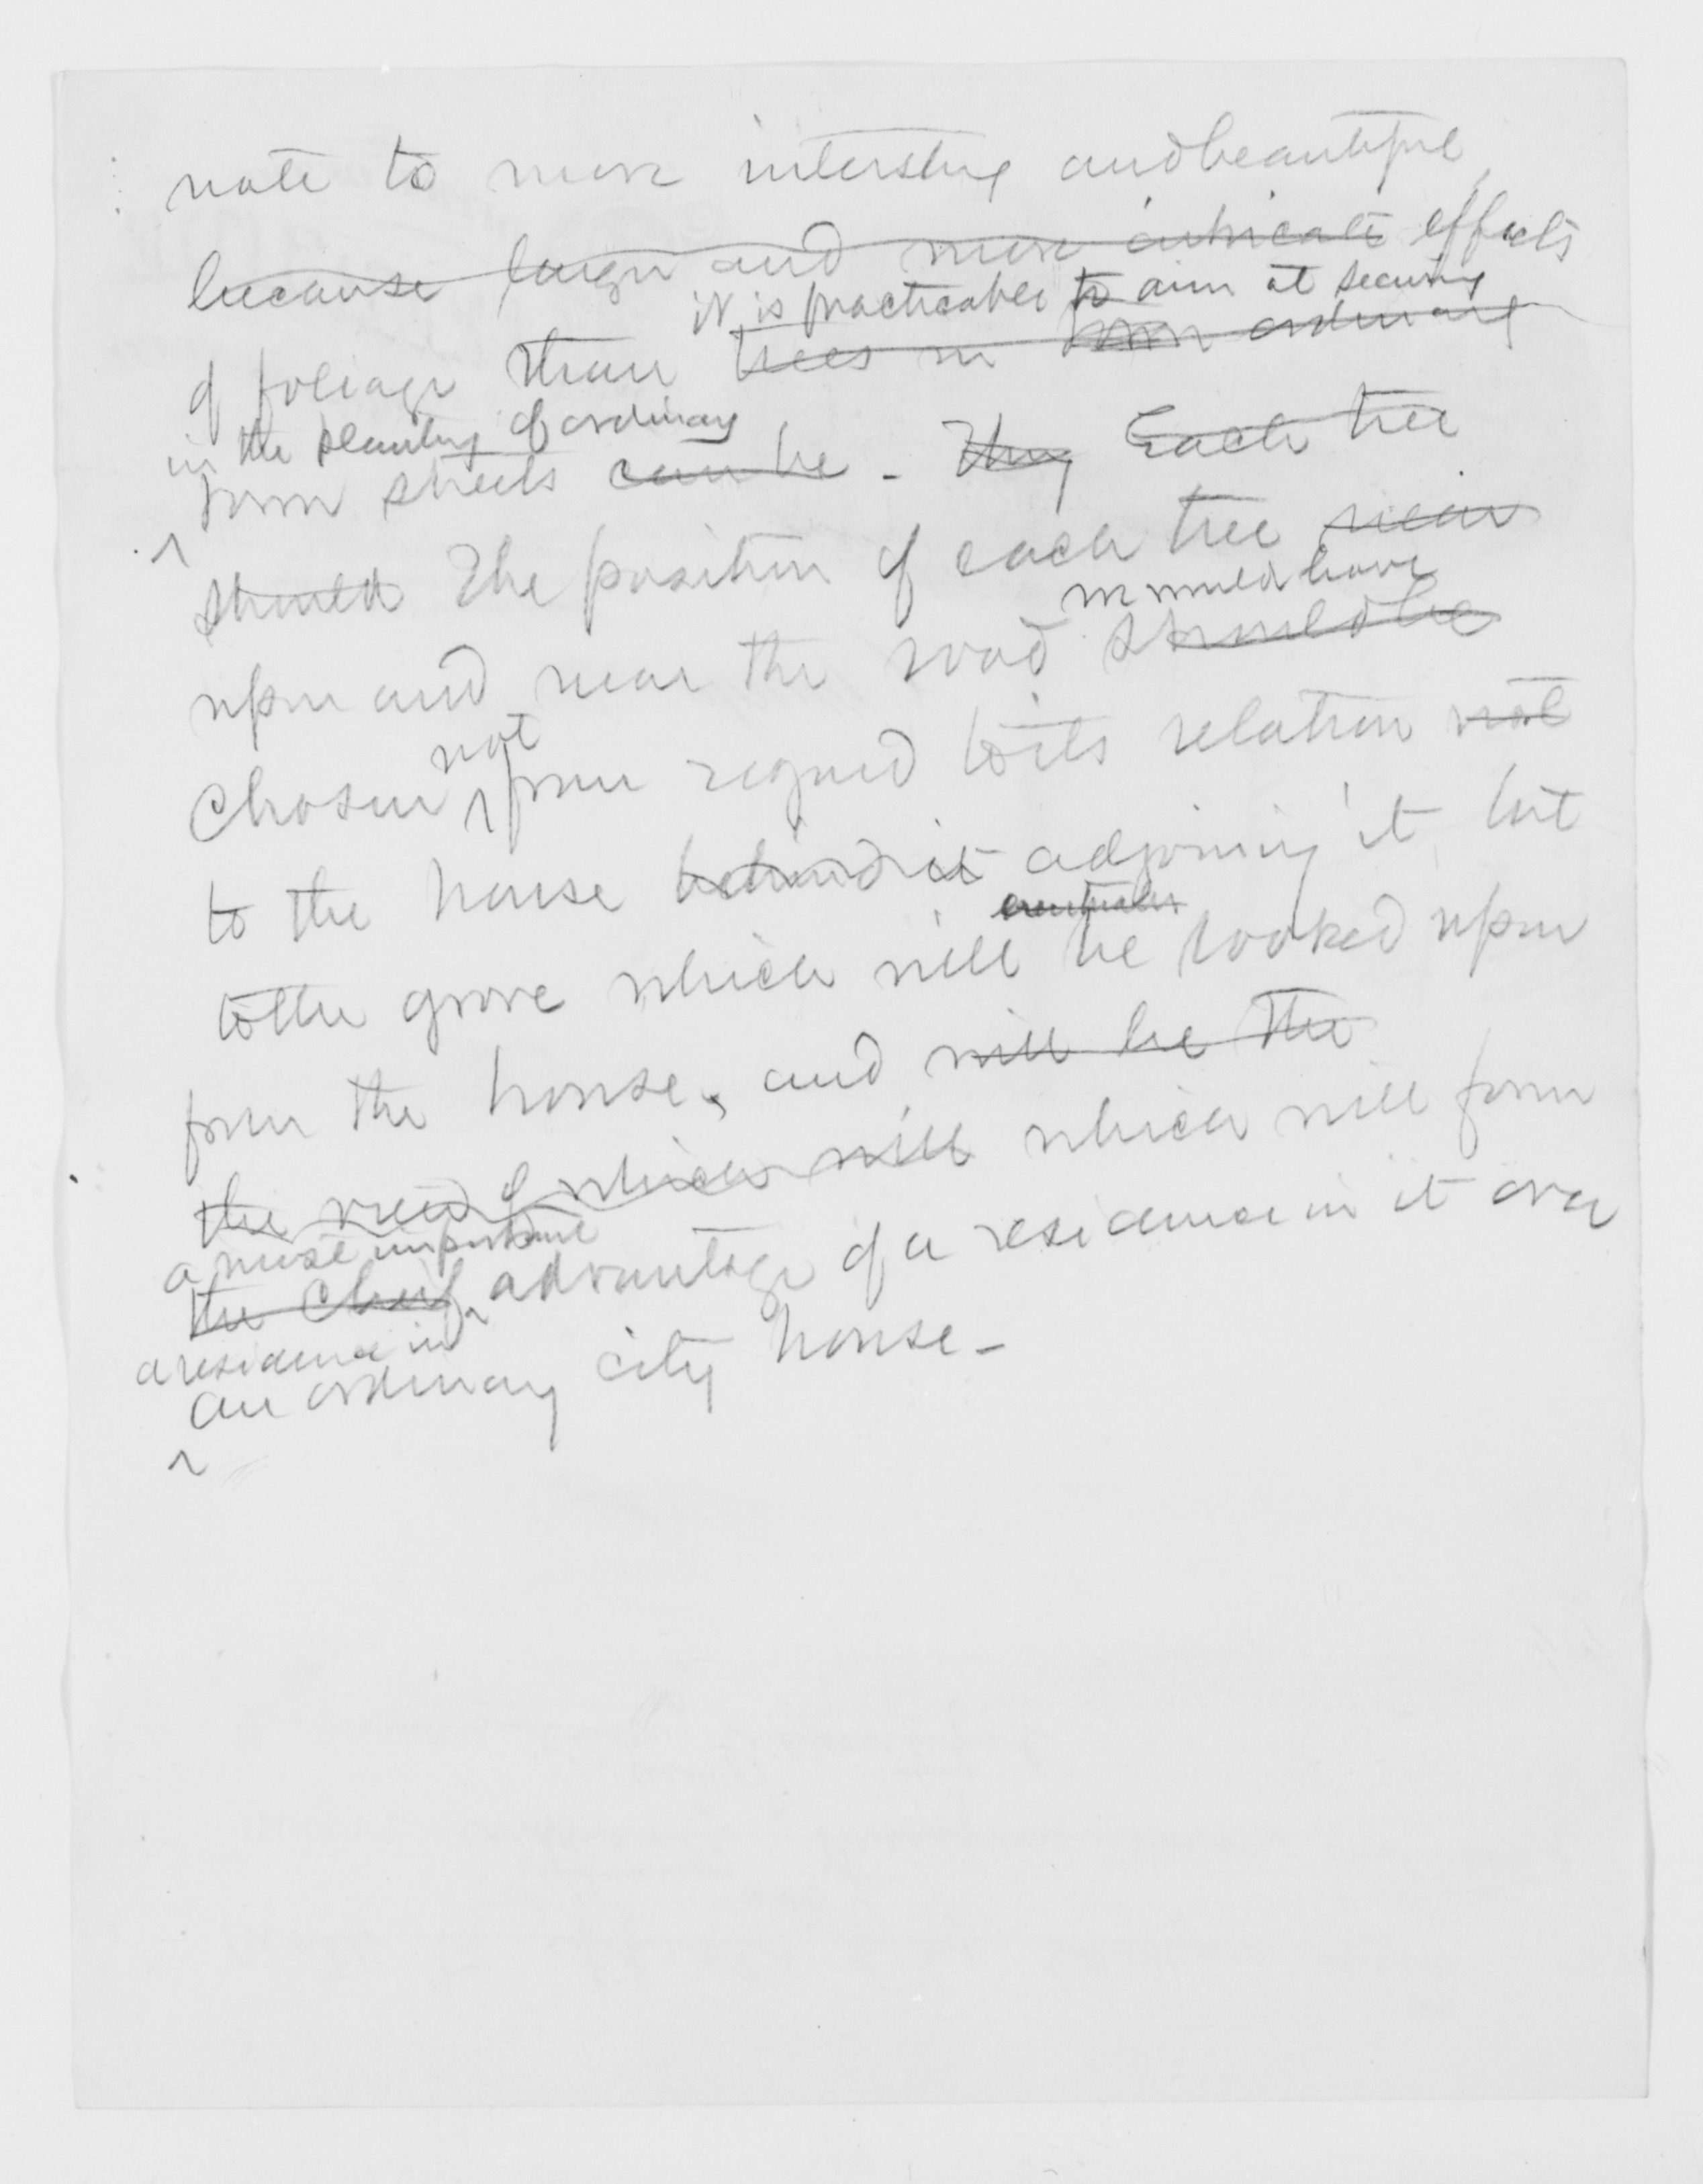 nate to more interesting and beautiful,
because larger and more intricate effects
it is practicable to aim at securing
of foliage than trees in town ordinary
in the planting of ordinary
town streets can be - They Each tree
should The position of each tree near
we would have
upon and near the road should be
not
chosen from regard to its relation not
to the house behind it adjoining it but
eventually
to the grove which will be looked upon
from the house, and will be the
the view of which will which will form
a most important
the chief advantage of a residence in it over
a residence in
an ordinary city house -